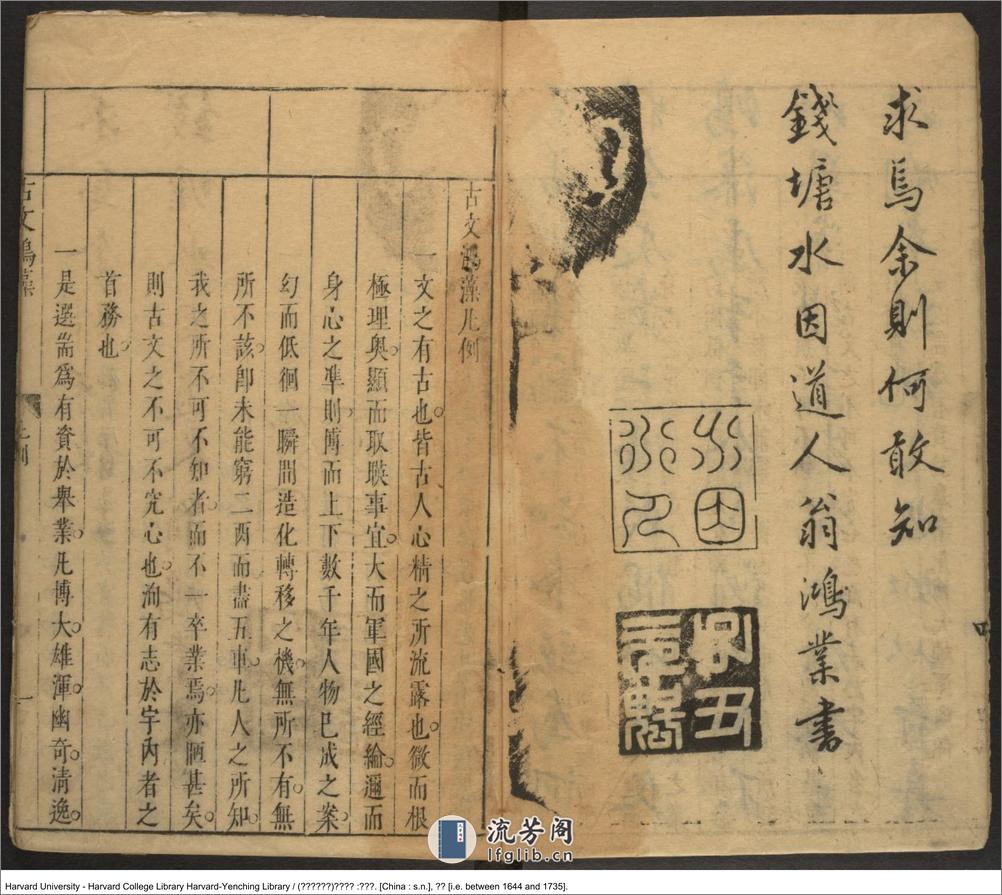 求焉余則何敢知
錢塘水因道人翁鴻業書
水因
古文鴻藻凡例
一文之有古也。皆古人心精之所流露也。微而根
極理奧。顯而取暎事宜。大而軍國之經綸。邇而
身心之準則。博而上下數千年人物已成之案。
幻而低徊一瞬間造化轉移之機。無所不有。無
所不該。卽未能窮二酉而盡五車。凡人之所知。
我之所不可不知者。而不一卒業焉。亦陋甚矣。
則古文之不可不究心也。洵有志於宇內者之
首務也。
一是選耑爲有資於舉業。凡博大。雄渾。幽奇。清逸。
古文鴻藻
凡例
一
流芳阁
lfglib.cn
Harvard University - Harvard College Library Harvard-Yenching Library / (??????)???? :???. [China : s.n.], ?? [i.e. between 1644 and 1735].